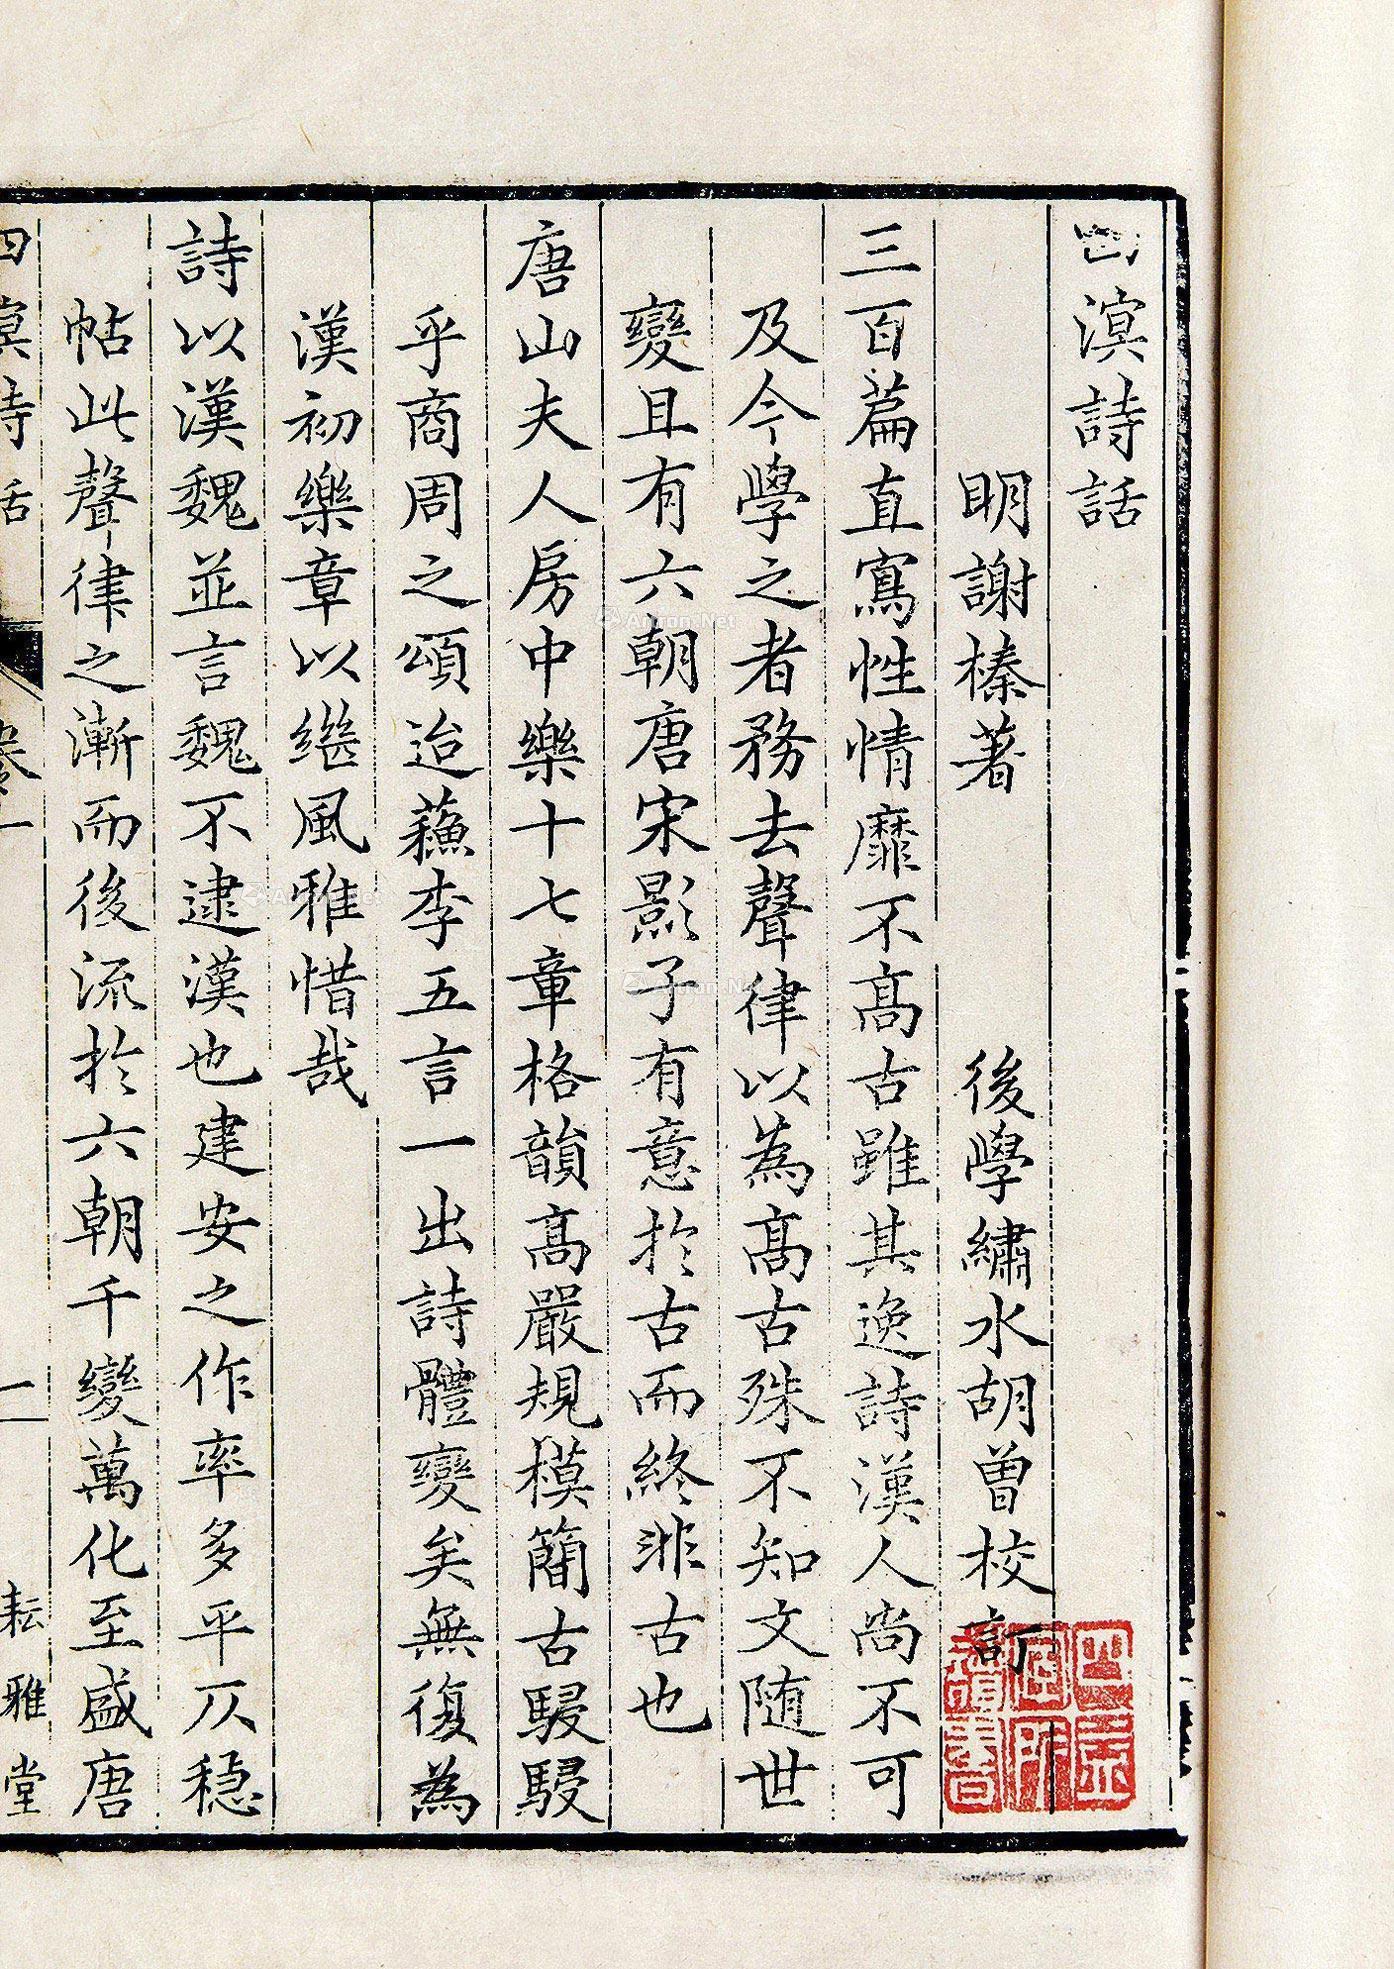 四溟詩話
明謝榛著　後學繡水胡曾校訂
三百篇直寫性情靡不高古雖其逸詩漢人尚不可
及今學之者務去聲律以為高古殊不知文随世
變且有六朝唐宋影子有意於古而終非古也
唐山夫人房中樂十七章格韻高嚴規模簡古駸駸
乎商周之頌迨蘓李五言一出詩體變矣無復為
漢初樂章以繼風雅惜哉
詩以漢魏並言魏不逮漢也建安之作率多平仄穏
帖此聲律之漸而後流於六朝千變萬化至盛唐
四溟詩話　卷一　一　耘雅堂
Artron.Net
Artron.Net
Artron.Net